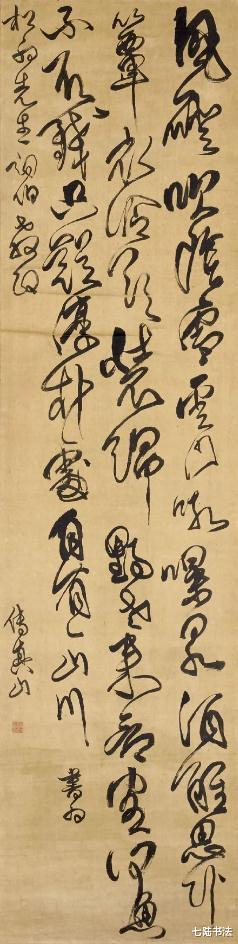 風磴吹陰雪雲門吼瀑泉酒醒思卧
簟衣冷欲裝綿野老來看客河魚
不取錢只疑淳朴處自有一山川書為
松先生詞伯教政
傅真山
七陆书法